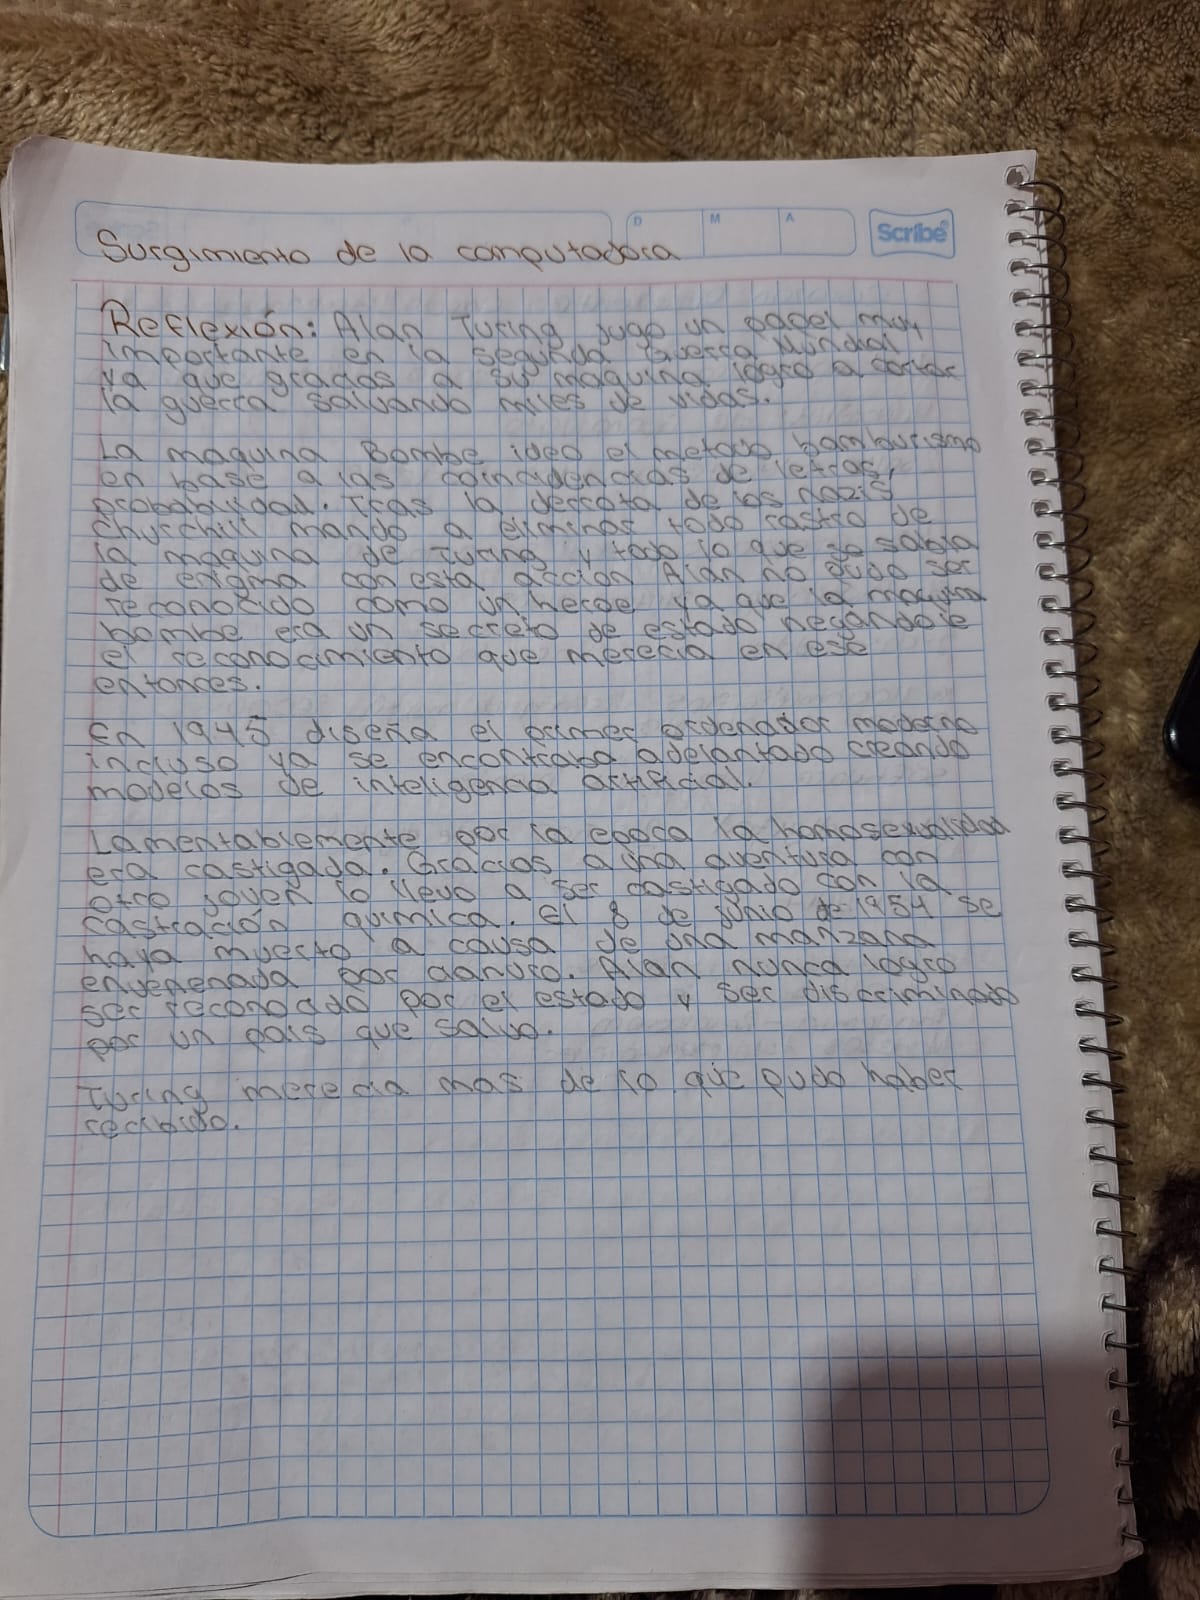 D M A
Scribe
Surgimiento de la computadora
Reflexión: Alan Turing jugo un papel muy
importante en la segunda guerra Mundial,
ya que gracias a su maquina logro acortar
la guerra salvando miles de vidas.
La maquina Bombe ideo el metodo bamburismo
en base a las coincidencias de letras,
probabilidad. Tras la derrota de los nazis
Churchill mando a eliminar todo rastro de
la maquina de Turing y todo lo que se sabia
de enigma con esta accion Alan no pudo ser
reconocido como un heroe ya que la maquina
bombe era un secreto de estado negandole
el reconocimiento que merecia en ese
entonces.
En 1945 diseña el primer ordenador moderno
incluso ya se encontraba adelantado creando
modelos de inteligencia artificial.
Lamentablemente por la epoca la homosexualidad
era castigada. Gracias a una aventura con
otro joven lo llevo a ser castigado con la
castración quimica. el 8 de junio de 1954 se
haya muerto a causa de una manzana
envenenada por cianuro. Alan nunca logro
ser reconocido por el estado y ser discriminado
por un pais que salvo.
Turing merecia mas de lo que pudo haber
recibido.